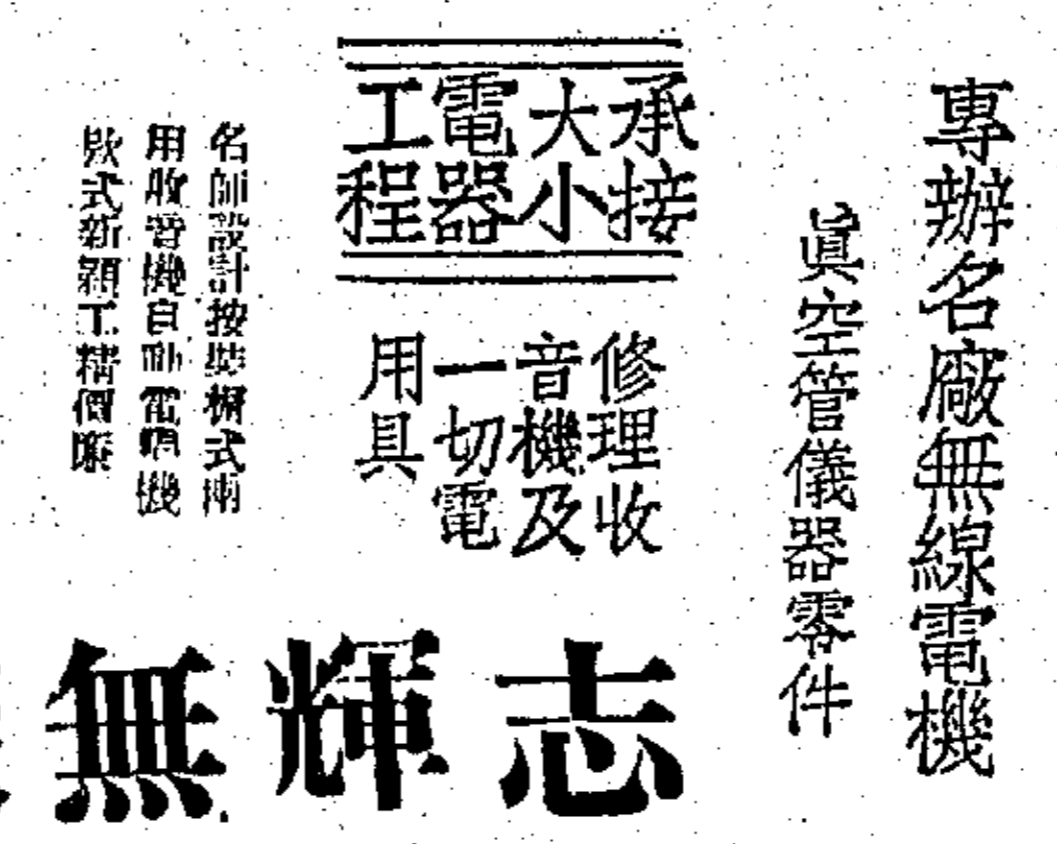 專辦名廠無線電機
真空管儀器零件
承接
大小
電器
工程
修理收
音機及
一切電
用具
名師設計按裝橱式兩
用收音機自動電唱機
欵式新穎工精價廉
志輝無